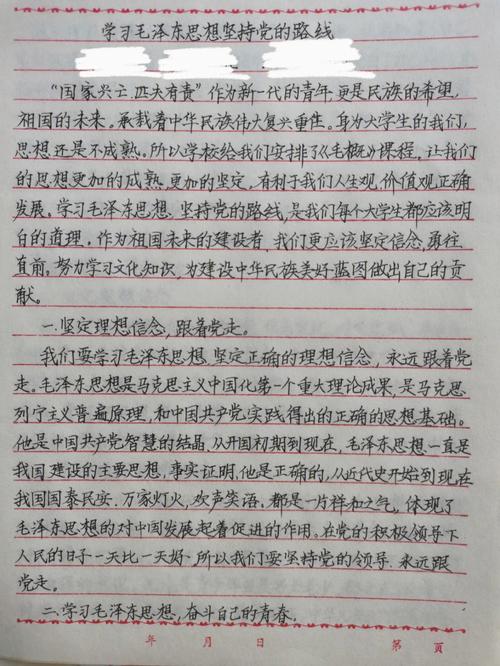 学习毛泽东思想坚持党的路线
“国家兴亡.匹夫有责”作为新一代的青年,更是民族的希望,
祖国的未来。承载着中华民族伟大复兴重任。身为大学生的我们,
思想还是不成熟。所以学校给我们安排了《毛概》课程,让我们
的思想更加的成熟.更加的坚定,有利于我们人生观.价值观正确
发展。学习毛泽东思想.坚持党的路线,是我们每个大学生都应该明
白的道理。作为祖国未来的建设者,我们更应该坚定信念,勇往
直前。努力学习文化知识,为建设中华民族美好蓝图做出自己的贡
献。
一.坚定理想信念,跟着党走。
我们要学习毛泽东思想.坚定正确的理想信念,永远跟着党
走。毛泽东思想是马克思主义中国化第一个重大理论成果,是马克思
列宁主义普遍原理,和中国共产党实践得出的正确的思想基础。
他是中国共产党智慧的结晶,从开国初期到现在,毛泽东思想一直是
我国建设的主要思想,事实证明,他是正确的,从近代史开始到现在
我国国泰民安.万家灯火,欢声笑语.都是一片祥和之气,体现了
毛泽东思想的对中国发展起着促进的作用。在党的积极领导下
人民的日子一天比一天好.所以我们要坚持党的领导.永远跟
党走。
二.学习毛泽东思想,奋斗自己的青春。
年 月 日 第 页